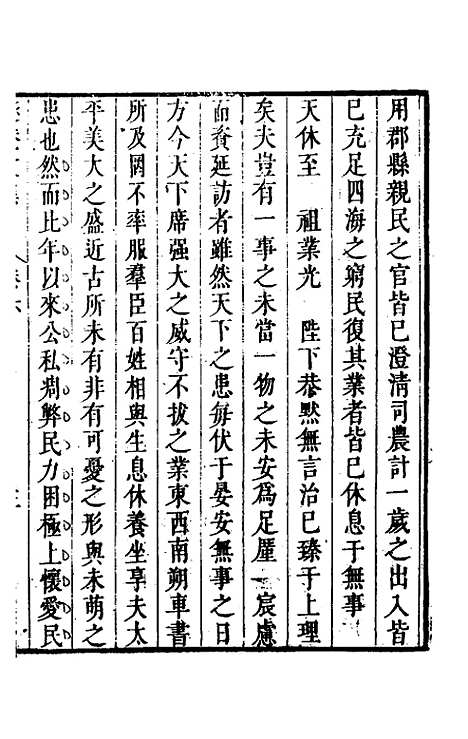 用郡縣親民之官皆已澄淸司農計一歲之出入皆
已充足四海之窮民復其業者皆已休息于無事
天休至　祖業光　陛下恭默無言治已臻于上理
矣夫豈有一事之未當一物之未安爲足厪　宸慮
而資延訪者雖然天下之患每伏于晏安無事之日
方今天下席强大之威守不拔之業東西南朔車書
所及罔不率服羣臣百姓相與生息休養坐享夫太
平美大之盛近古所未有非有可憂之形與未萌之
患也然而比年以來公私凋弊民力困極上懷愛民